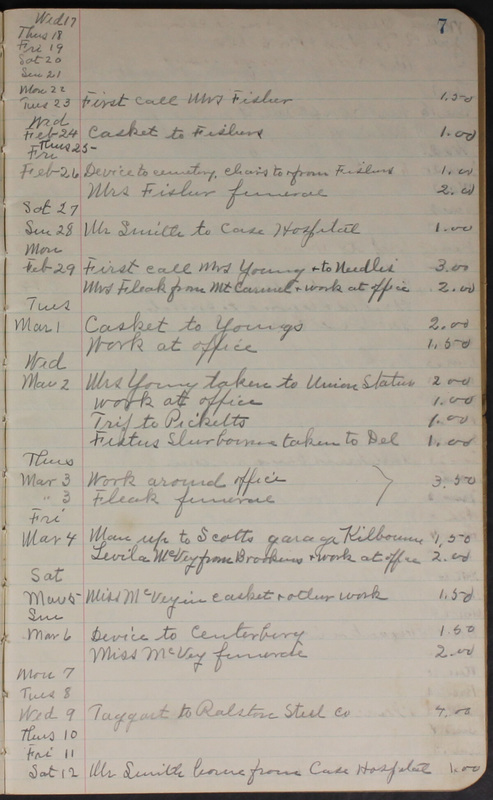 7
Wed 17
Thus 18
Fri 19
Sat 20
Sun 21
Mon 22
Tues 23 First call Mrs Fisher 1.50
Wed
Feb 24 Casket to Fishers 1.00
Thus 25-
Fri
Feb 26 Device to cemetry, chairs to + from Fishers 1.00
Mrs Fisher funeral 2.00
Sat 27
Sun 28 Mr Smith to Case Hospital 1.00
Mon
Feb 29 First call Mrs Young + to Needles 3.00
Mrs Fleak from Mt Carmel + work at office 2.00
Tues
Mar 1 Casket to Youngs 2.00
Work at office 1.50
Wed
Mar 2 Mrs Young taken to Union Station 2.00
work at office 1.00
Trip to Picketts 1.00
Fistus taken to Del 1.00
Thus
Mar 3 Work around office 3.50
" 3 Fleak funeral
Fri
Mar 4 Man up to Scotts garage Kilbourne 1.50
Levila McVey from Brookens + work at office 2.00
Sat
Mar 5 Miss McVey in casket + other work 1.50
Sun
Mar 6 Device to Centerburg 1.50
Miss McVey funeral 2.00
Mon 7
Tues 8
Wed 9 Taggart to Ralston Steel Co 4.00
Thus 10
Fri 11
Sat 12 Mr Smith home from Case Hospital 1.00